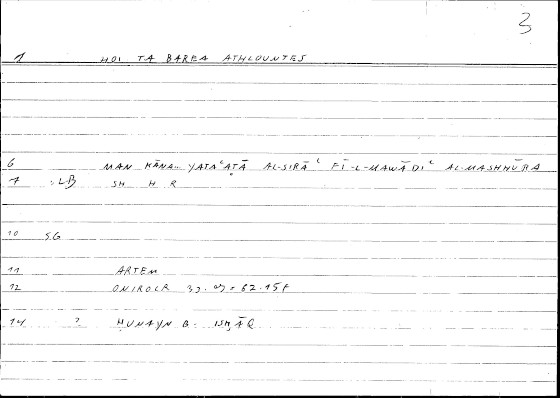 3
1 HOI TA BAREA ATHLOUNTES
6 MAN KĀNA.. YATAʿATĀ AL-SIRĀʿ FĪ-L-MAWĀḌIʿ AL-MASHHŪRA
7 LB SH H R
10 SG
11 ARTEM
12 ONIROCR
14 ? ḤUNAYN B. ISḤĀQ